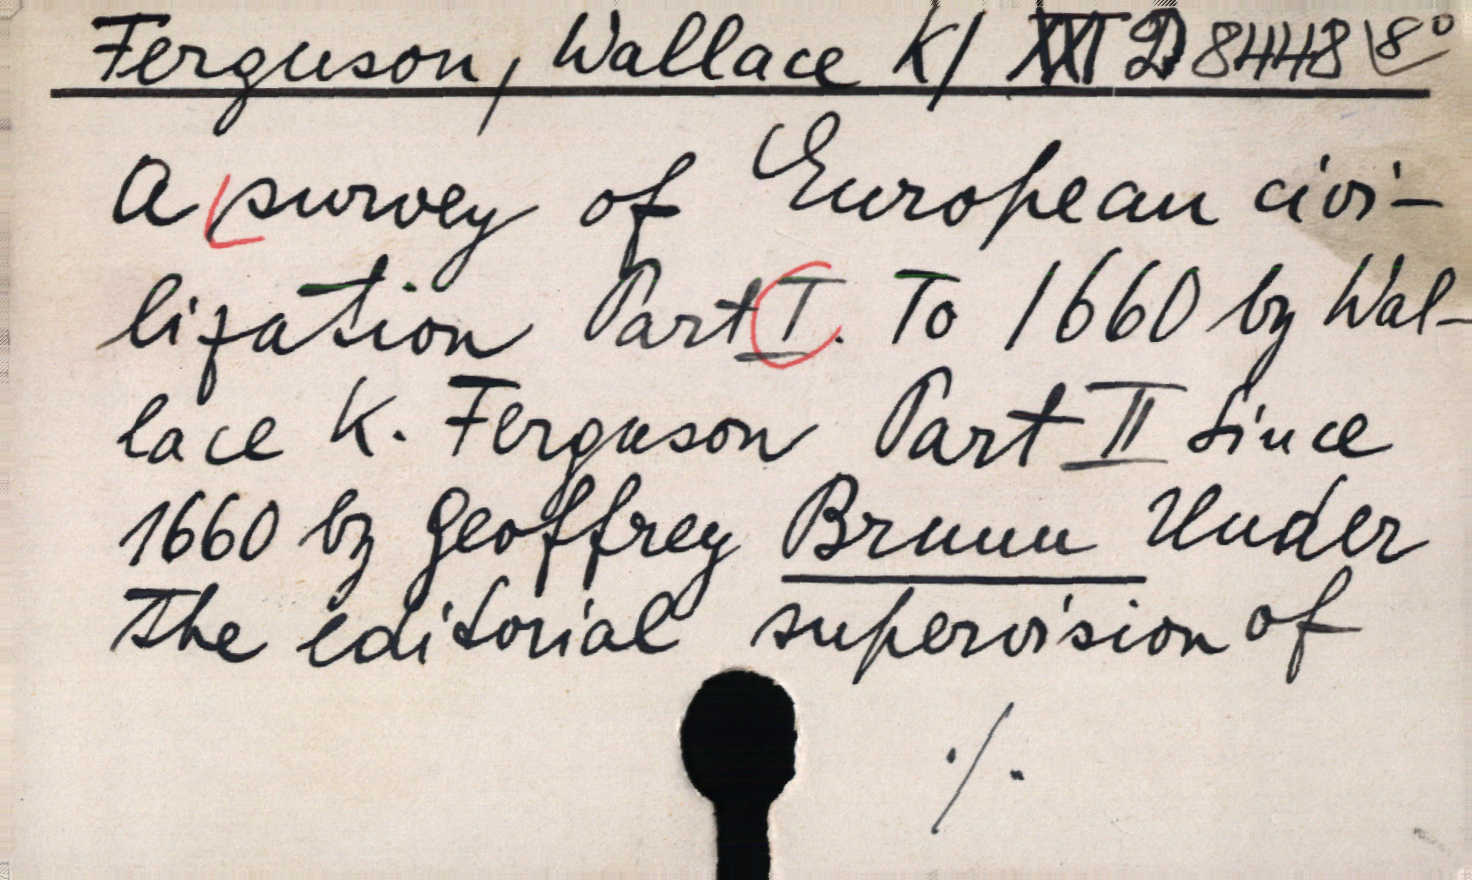 Ferguson, Wallace K/ XXI D 8448 8°
A survey of European civi-
lization Part I. To 1660 by Wal-
lace K. Ferguson Part II Since
1660 by Geoffrey Bruun Under
the editorial supervision of
./.